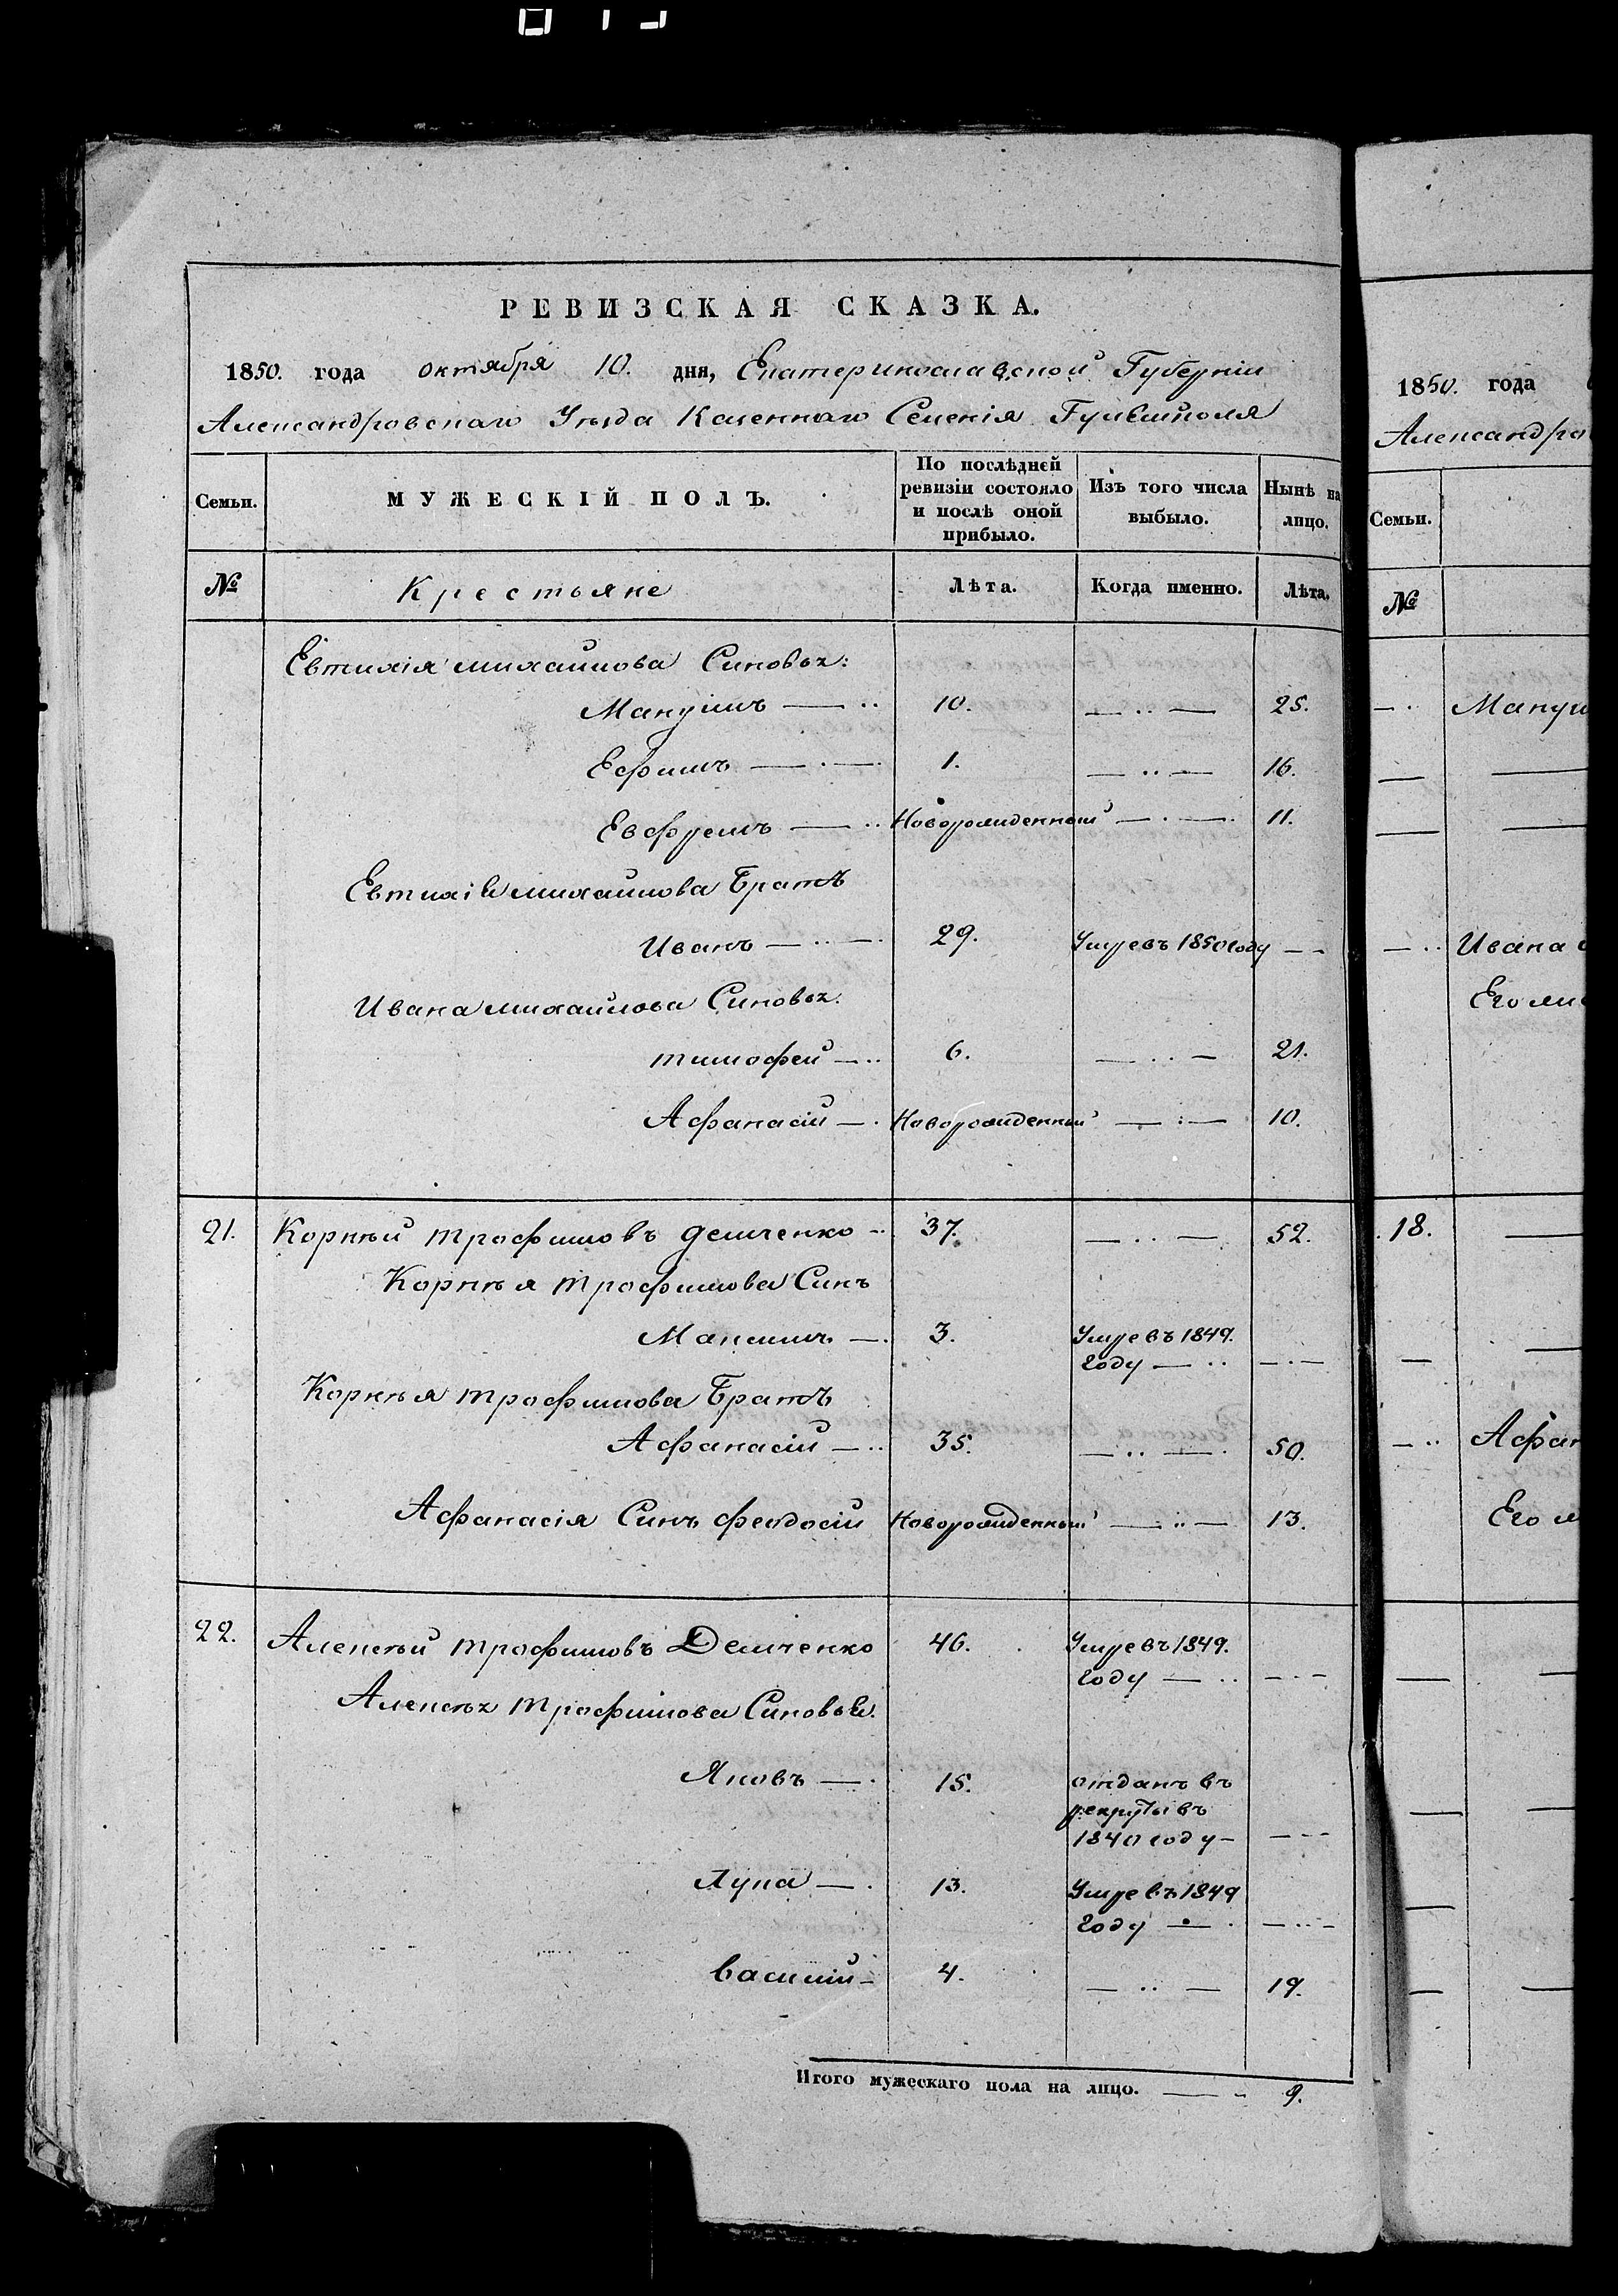 РЕВИЗСКАЯ СКАЗКА.
1850. года октября 10. дня, Екатеринославской Губерніи
Александровскаго Уѣзда Казеннаго Селенія Гуляйполя
Семьи. МУЖЕСКІЙ ПОЛЪ. По послѣдней ревизіи состояло и послѣ оной прибыло. Изъ того числа выбыло. Нынѣ на лицо.
№ Крестьяне Лѣта. Когда именно. Лѣта.
Евтихія михайлова Синовья:
Мануилъ — 10. — 25.
Ефимъ — 1. — 16.
Евфремъ — Новорожденный — 11.
Евтихія михайлова Братъ
Иванъ — 29. Умре въ 1850 году —
Ивана михайлова Синовья.
тимофей — 6. — 21.
Афанасій — Новорожденный — 10.
21. Корнѣй трофимовъ демченко 37. — 52.
Корнѣя трофимова Синъ
Максимъ — 3. Умре въ 1849.
году —
Корнѣя трофимова Братъ
Афанасій — 35. — 50.
Афанасія Синъ феодосій Новорожденный — 13.
22. Алексѣй трофимовъ Демченко 46. Умре въ 1849.
году —
Алексѣя трофимова Синовья.
Яковъ — 15. отданъ въ
рекруты въ
1840 году —
Лука — 13. Умре въ 1849
году —
василій — 4. — 19.
Итого мужескаго пола на лицо. — 9.
1850. года
Семьи.
№
Ивана
18.
Его